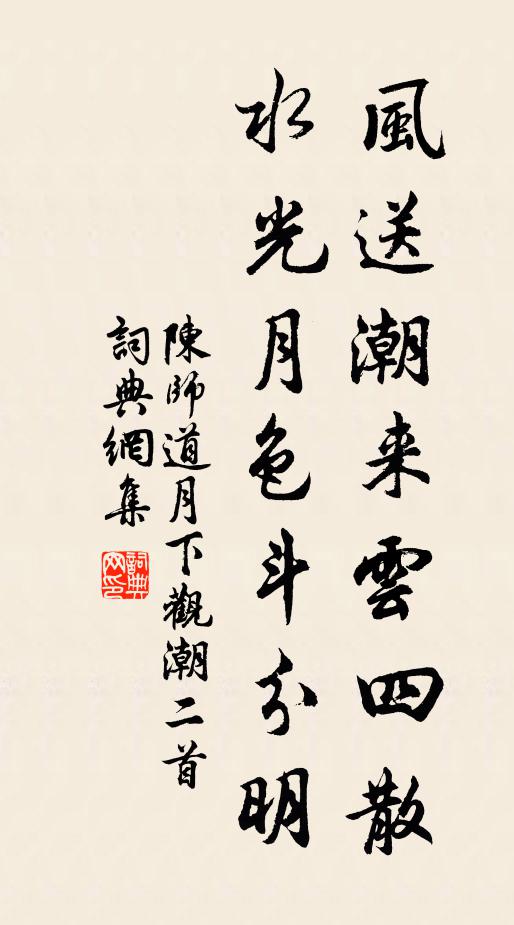 風送潮来雲四散
水光月色斗分明
陳師道月下觀潮二首
詞典網集
詞典网印